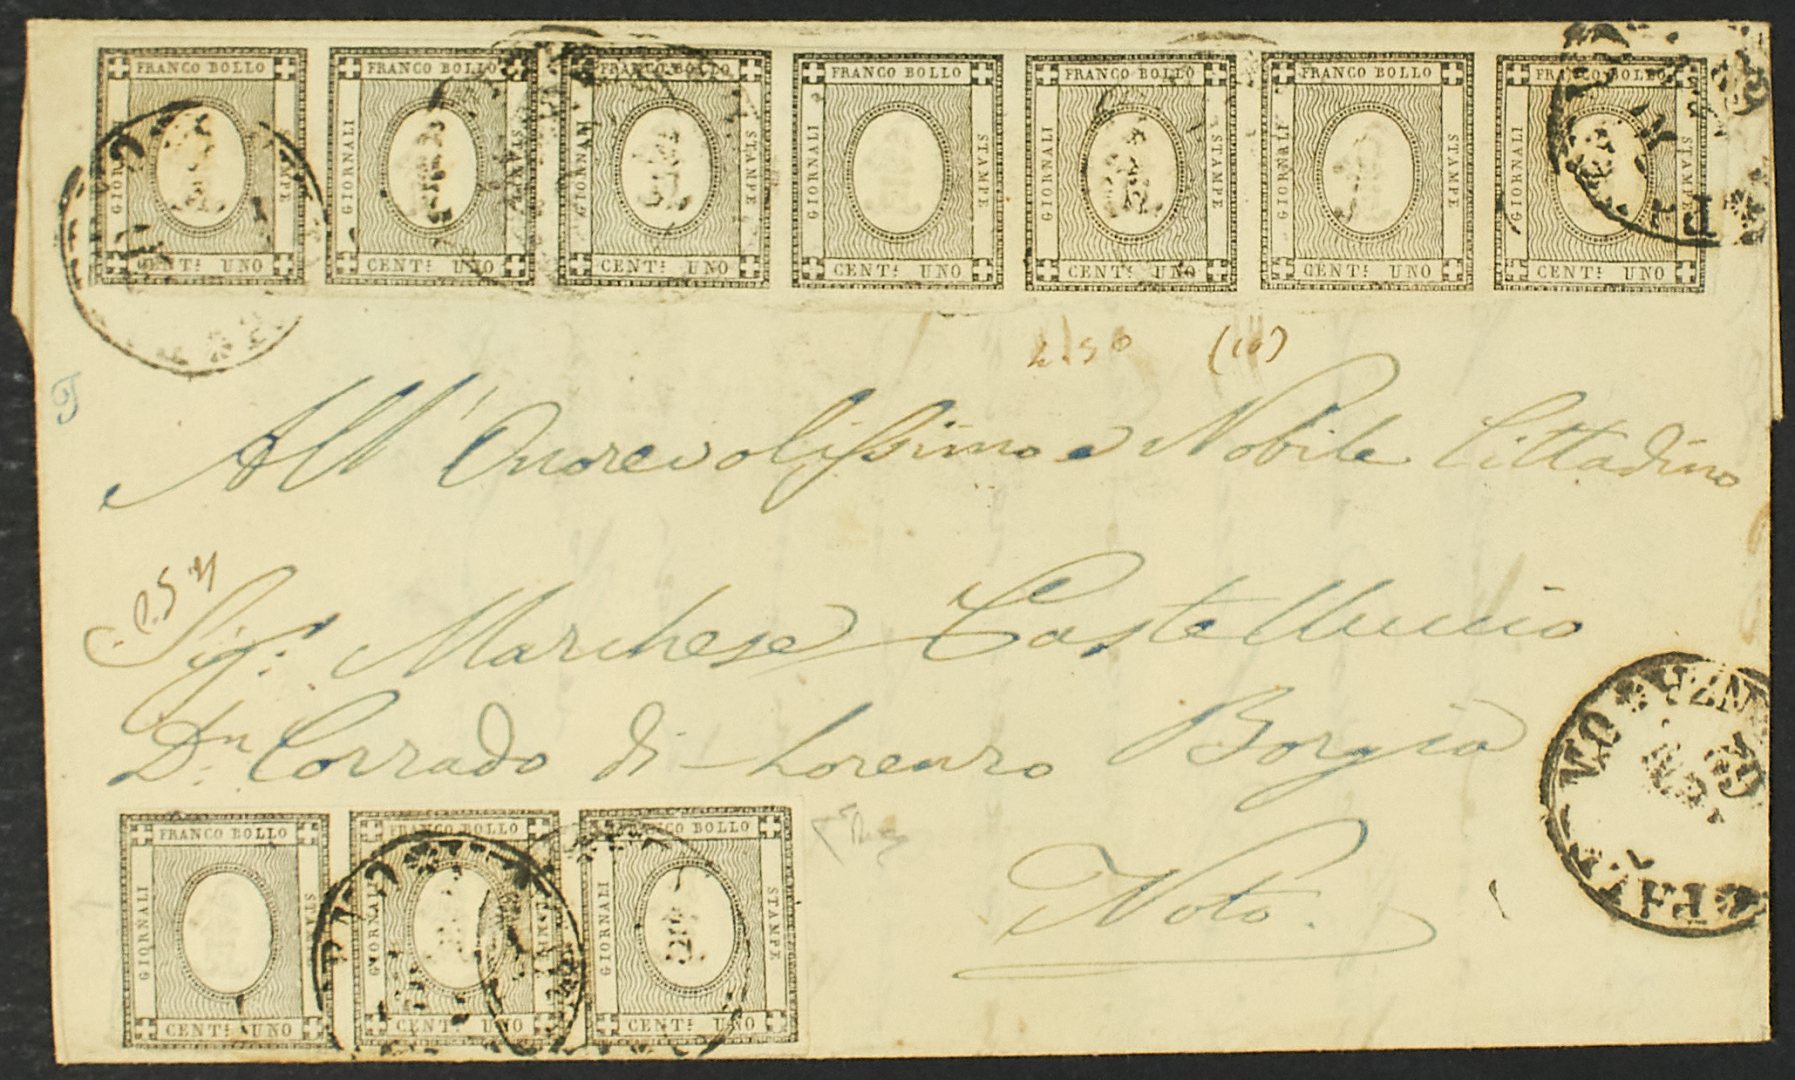 FRANCO BOLLO FRANCO BOLLO FRANCO BOLLO FRANCO BOLLO FRANCO BOLLO FRANCO BOLLO FRANCO BOLLO
GIORNALI STAMPE GIORNALI STAMPE GIORNALI STAMPE GIORNALI STAMPE GIORNALI STAMPE GIORNALI STAMPE GIORNALI STAMPE
CENT: UNO CENT: UNO CENT: UNO CENT: UNO CENT: UNO CENT: UNO CENT: UNO
(10)
All' Onorevolissimo e Nobile Cittadino
Sig: Marchese Castelluccio
Dn Corrado di Lorenzo Borgia
Noto.
FRANCO BOLLO FRANCO BOLLO FRANCO BOLLO
GIORNALI STAMPE GIORNALI STAMPE GIORNALI STAMPE
CENT: UNO CENT: UNO CENT: UNO